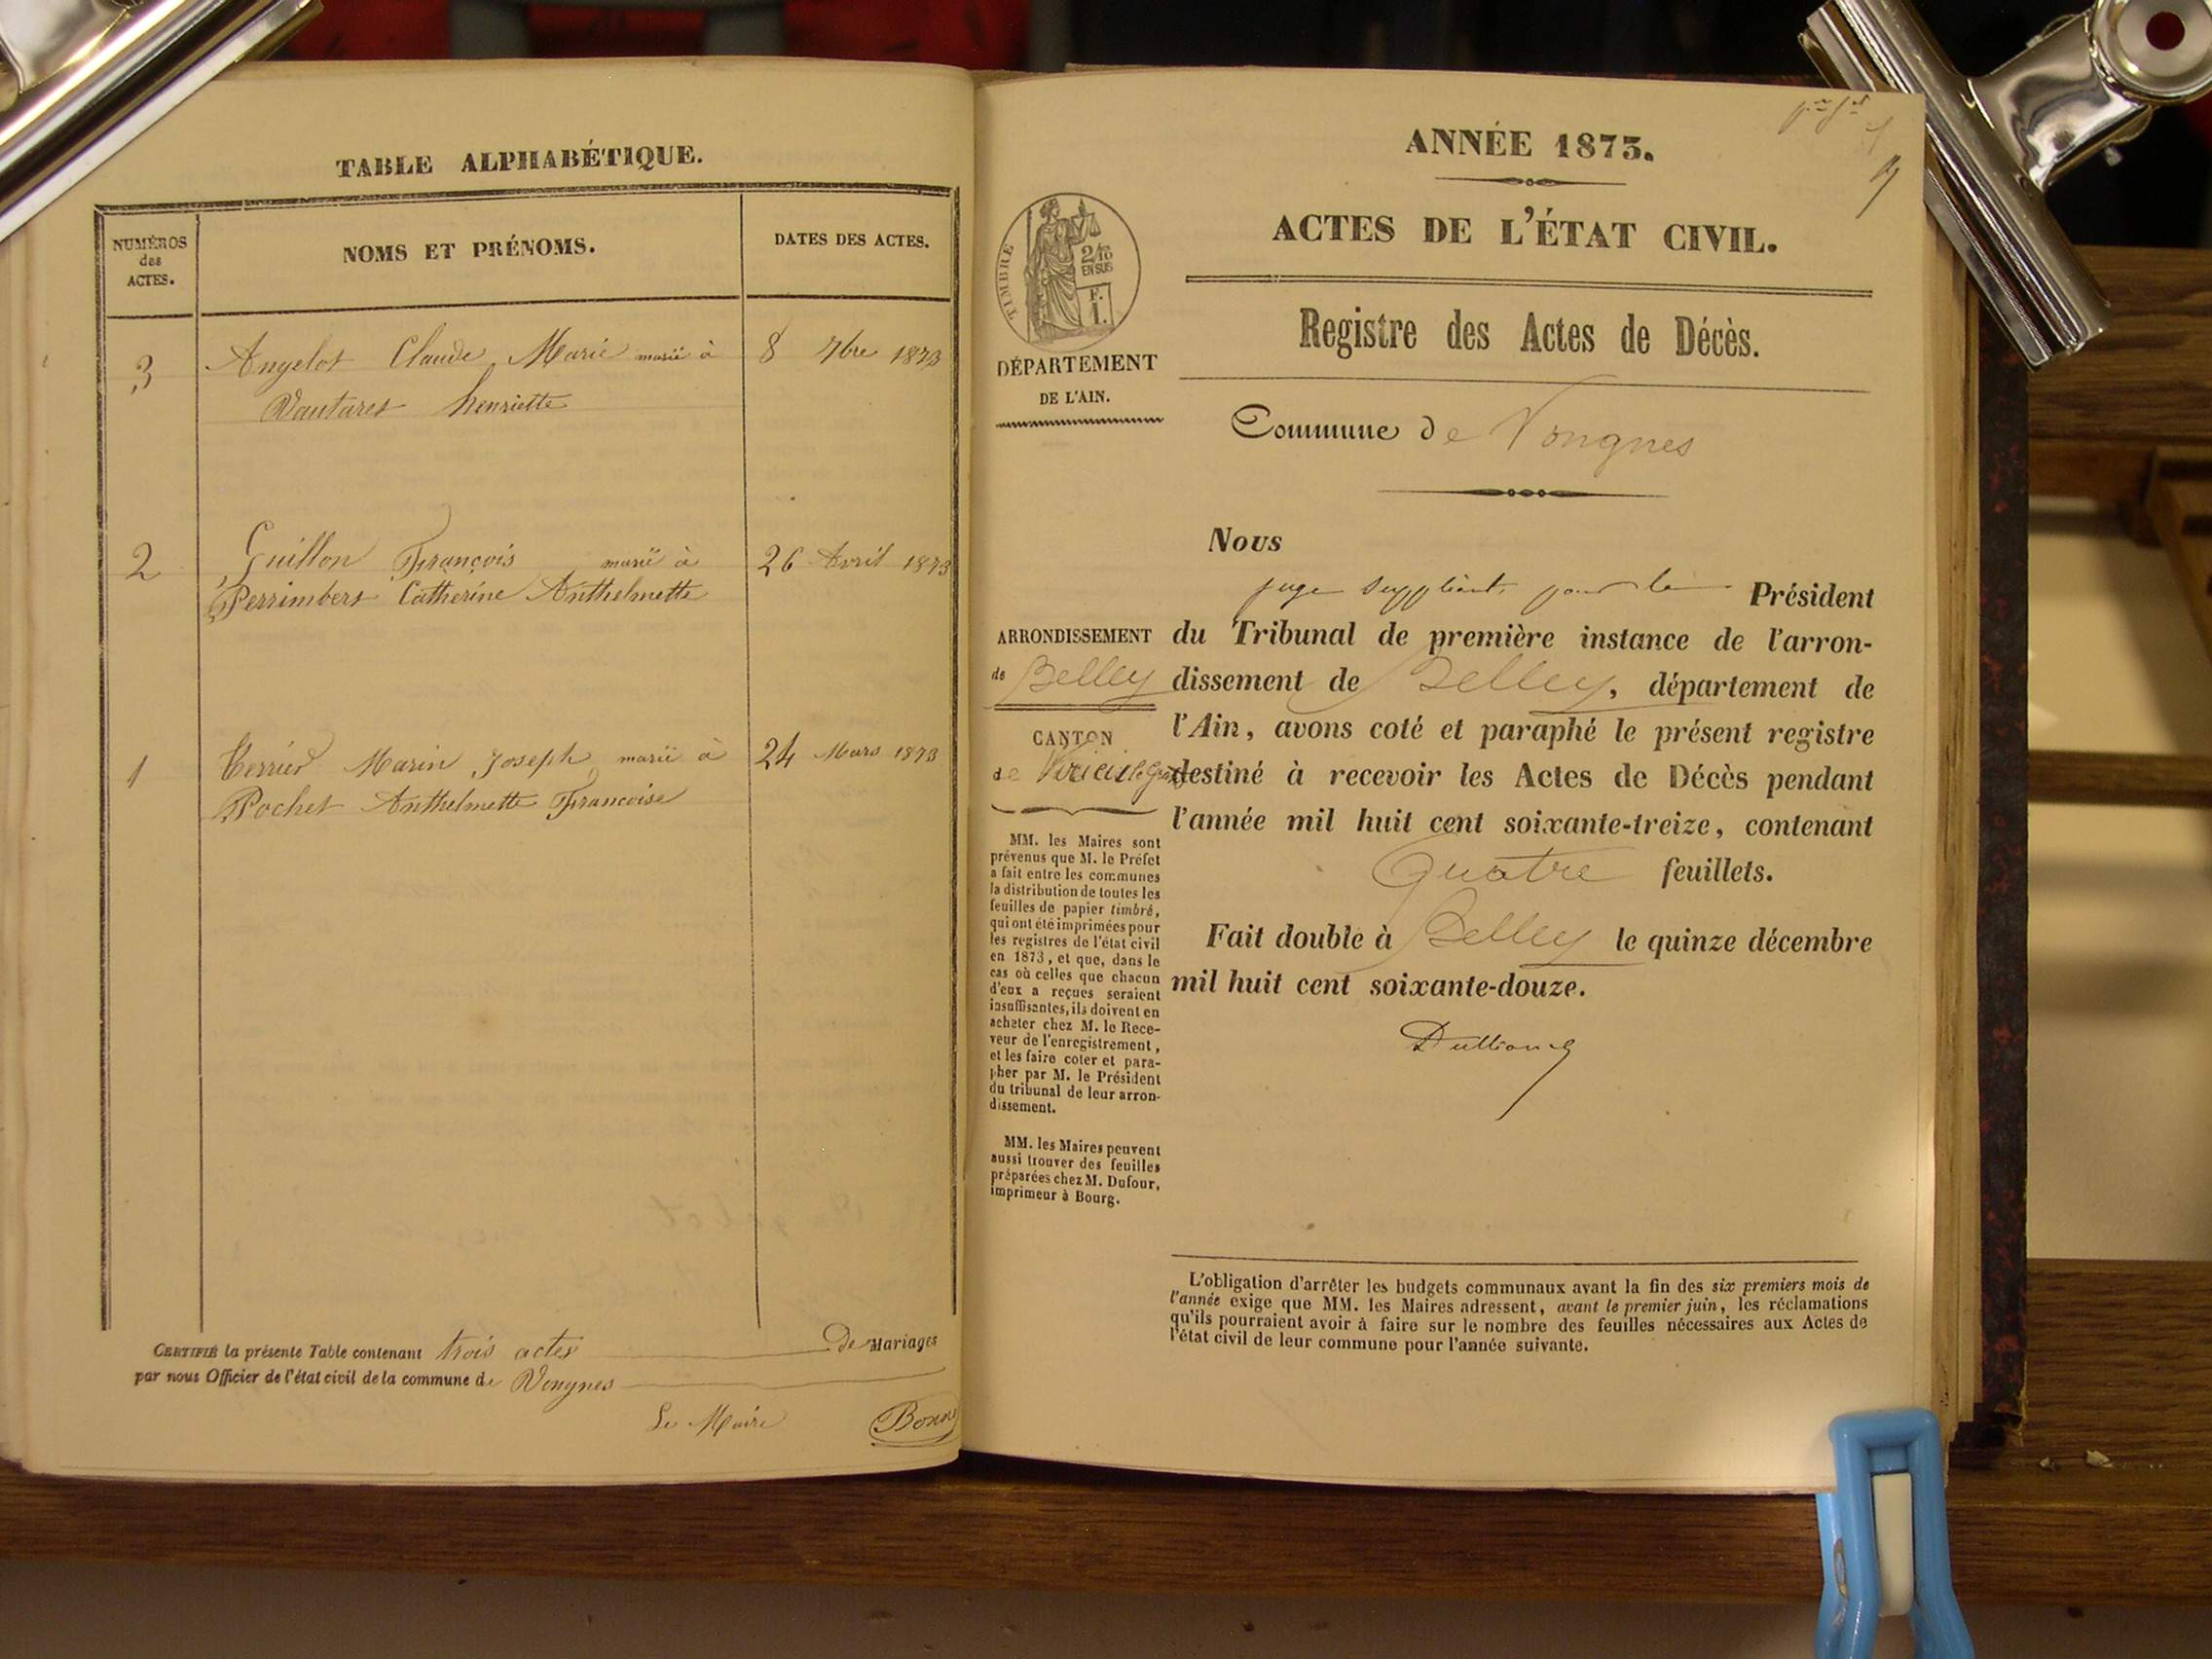 TABLE ALPHABÉTIQUE.
NUMÉROS
des
ACTES.
NOMS ET PRÉNOMS.
DATES DES ACTES.
3 Angelot Claude Marie marié à 8 7bre 1873
Vautaret henriette
2 Guillon François marië à 26 Avril 1873
Perrimbert Catherine Anthelmette
1 Terrier Marin Joseph marië à 24 Mars 1873
Pochet Anthelmette Francoise
CERTIFIÉ la présente Table contenant trois actes De Mariages
par nous Officier de l'état civil de la commune de Vongnes
Le Maire
ANNÉE 1873.
ACTES DE L'ÉTAT CIVIL.
TIMBRE
2/10
EN SUS
F.
1.
DÉPARTEMENT
DE L'AIN.
Registre des Actes de Décès.
Commune de Vongnes
Nous
juge suppléant, pour le Président
du Tribunal de première instance de l'arron-
dissement de Belley, département de
l'Ain, avons coté et paraphé le présent registre
destiné à recevoir les Actes de Décès pendant
l'année mil huit cent soixante-treize, contenant
Quatre feuillets.
Fait double à Belley le quinze décembre
mil huit cent soixante-douze.
ARRONDISSEMENT
de Belley
CANTON
de Virieu le Grand
MM. les Maires sont
prévenus que M. le Préfet
a fait entre les communes
la distribution de toutes les
feuilles de papier timbré,
qui ont été imprimées pour
les registres de l'état civil
en 1873, et que, dans le
cas où celles que chacun
d'eux a reçues seraient
insuffisantes, ils doivent en
acheter chez M. le Rece-
veur de l'enregistrement,
et les faire coter et para-
pher par M. le Président
du tribunal de leur arron-
dissement.
MM. les Maires peuvent
aussi trouver des feuilles
préparées chez M. Dufour,
imprimeur à Bourg.
L'obligation d'arrêter les budgets communaux avant la fin des six premiers mois de
l'année exige que MM. les Maires adressent, avant le premier juin, les réclamations
qu'ils pourraient avoir à faire sur le nombre des feuilles nécessaires aux Actes de
l'état civil de leur commune pour l'année suivante.